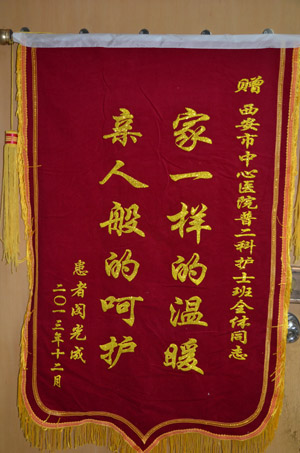 赠 西安市中心医院普二科护士班全体同志
家一样的温暖
亲人般的呵护
患者闵光成
二〇一三年十二月